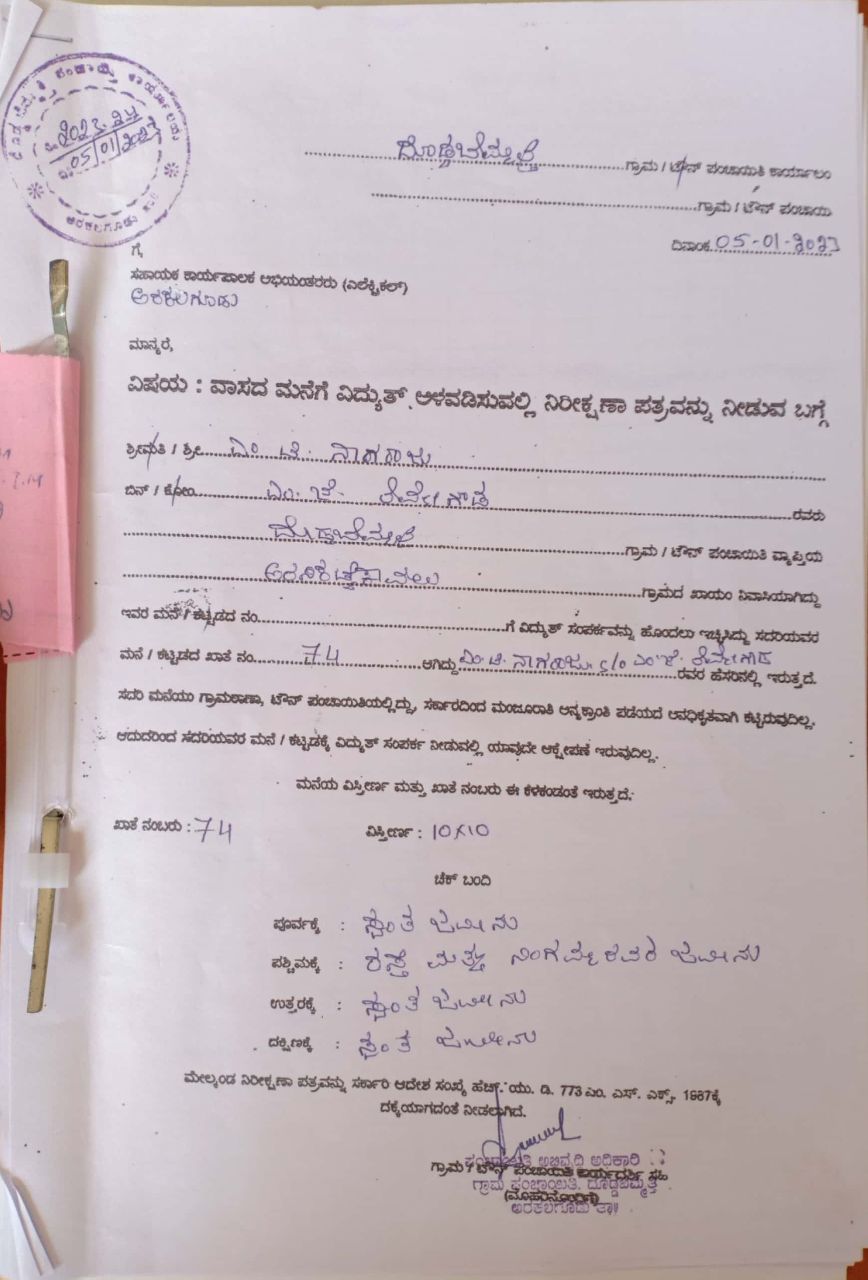 ದೊಡ್ಡಬೆಮ್ಮತ್ತಿ ಪಂಚಾಯ್ತಿ ಕಾರ್ಯಾಲಯ
ಅರಕಲಗೂಡು ತಾ||
2022-23
05/01/2023
ದೊಡ್ಡಬೆಮ್ಮತ್ತಿ ಗ್ರಾಮ / ಟೌನ್ ಪಂಚಾಯಿತಿ ಕಾರ್ಯಾಲಂ
ಗ್ರಾಮ / ಟೌನ್ ಪಂಚಾಯಿ
ದಿನಾಂಕ 05-01-2023
ಗೆ,
ಸಹಾಯಕ ಕಾರ್ಯಪಾಲಕ ಅಭಿಯಂತರರು (ಎಲೆಕ್ಟ್ರಿಕಲ್)
ಅರಕಲಗೂಡು
ಮಾನ್ಯರೆ,
ವಿಷಯ : ವಾಸದ ಮನೆಗೆ ವಿದ್ಯುತ್ ಅಳವಡಿಸುವಲ್ಲಿ ನಿರೀಕ್ಷಣಾ ಪತ್ರವನ್ನು ನೀಡುವ ಬಗ್ಗೆ
ಶ್ರೀಮತಿ / ಶ್ರೀ ಎಂ ಟಿ. ನಾಗರಾಜು
ಬಿನ್ / ಕೋಂ ಎಂ. ಜೆ. ತಿಮ್ಮೇಗೌಡ ರವರು
ದೊಡ್ಡಬೆಮ್ಮತ್ತಿ ಗ್ರಾಮ / ಟೌನ್ ಪಂಚಾಯಿತಿ ವ್ಯಾಪ್ತಿಯ
ಅರನಿಕಟ್ಟೆಕಾವಲು ಗ್ರಾಮದ ಖಾಯಂ ನಿವಾಸಿಯಾಗಿದ್ದು
ಇವರ ಮನೆ / ಕಟ್ಟಡದ ನಂ. ಗೆ ವಿದ್ಯುತ್ ಸಂಪರ್ಕವನ್ನು ಹೊಂದಲು ಇಚ್ಛಿಸಿದ್ದು ಸದರಿಯವರ
ಮನೆ / ಕಟ್ಟಡದ ಖಾತೆ ನಂ. 74 ಆಗಿದ್ದು ಎಂ.ಟಿ. ನಾಗರಾಜು c/o ಎಂ.ಜೆ. ತಿಮ್ಮೇಗೌಡ ರವರ ಹೆಸರಿನಲ್ಲಿ ಇರುತ್ತದೆ.
ಸದರಿ ಮನೆಯು ಗ್ರಾಮಠಾಣಾ, ಟೌನ್ ಪಂಚಾಯಿತಿಯಲ್ಲಿದ್ದು, ಸರ್ಕಾರದಿಂದ ಮಂಜೂರಾತಿ ಅನ್ಯಕ್ರಾಂತಿ ಪಡೆಯದೆ ಅನಧಿಕೃತವಾಗಿ ಕಟ್ಟಿರುವುದಿಲ್ಲ.
ಆದುದರಿಂದ ಸದರಿಯವರ ಮನೆ / ಕಟ್ಟಡಕ್ಕೆ ವಿದ್ಯುತ್ ಸಂಪರ್ಕ ನೀಡುವಲ್ಲಿ ಯಾವುದೇ ಆಕ್ಷೇಪಣೆ ಇರುವುದಿಲ್ಲ.
ಮನೆಯ ವಿಸ್ತೀರ್ಣ ಮತ್ತು ಖಾತೆ ನಂಬರು ಈ ಕೆಳಕಂಡಂತೆ ಇರುತ್ತದೆ.
ಖಾತೆ ನಂಬರು : 74 ವಿಸ್ತೀರ್ಣ : 10X10
ಚೆಕ್ ಬಂದಿ
ಪೂರ್ವಕ್ಕೆ : ಸ್ವಂತ ಜಮೀನು
ಪಶ್ಚಿಮಕ್ಕೆ : ರಸ್ತೆ ಮತ್ತು ನಿಂಗಮ್ಮರವರ ಜಮೀನು
ಉತ್ತರಕ್ಕೆ : ಸ್ವಂತ ಜಮೀನು
ದಕ್ಷಿಣಕ್ಕೆ : ಸ್ವಂತ ಜಮೀನು
ಮೇಲ್ಕಂಡ ನಿರೀಕ್ಷಣಾ ಪತ್ರವನ್ನು ಸರ್ಕಾರಿ ಆದೇಶ ಸಂಖ್ಯೆ ಹೆಚ್. ಯು. ಡಿ. 773 ಎಂ. ಎಸ್. ಎಕ್ಸ್. 1987ಕ್ಕೆ
ದಕ್ಕೆಯಾಗದಂತೆ ನೀಡಲಾಗಿದೆ.
ಪಂಚಾಯಿತಿ ಅಭಿವೃದ್ಧಿ ಅಧಿಕಾರಿ
ಗ್ರಾಮ / ಟೌನ್ ಪಂಚಾಯಿತಿ ಕಾರ್ಯದರ್ಶಿ ಸಹಿ
ಗ್ರಾಮ ಪಂಚಾಯಿತಿ, ದೊಡ್ಡಬೆಮ್ಮತ್ತಿ
(ಮೊಹರಿನೊಂದಿಗೆ)
ಅರಕಲಗೂಡು ತಾ||